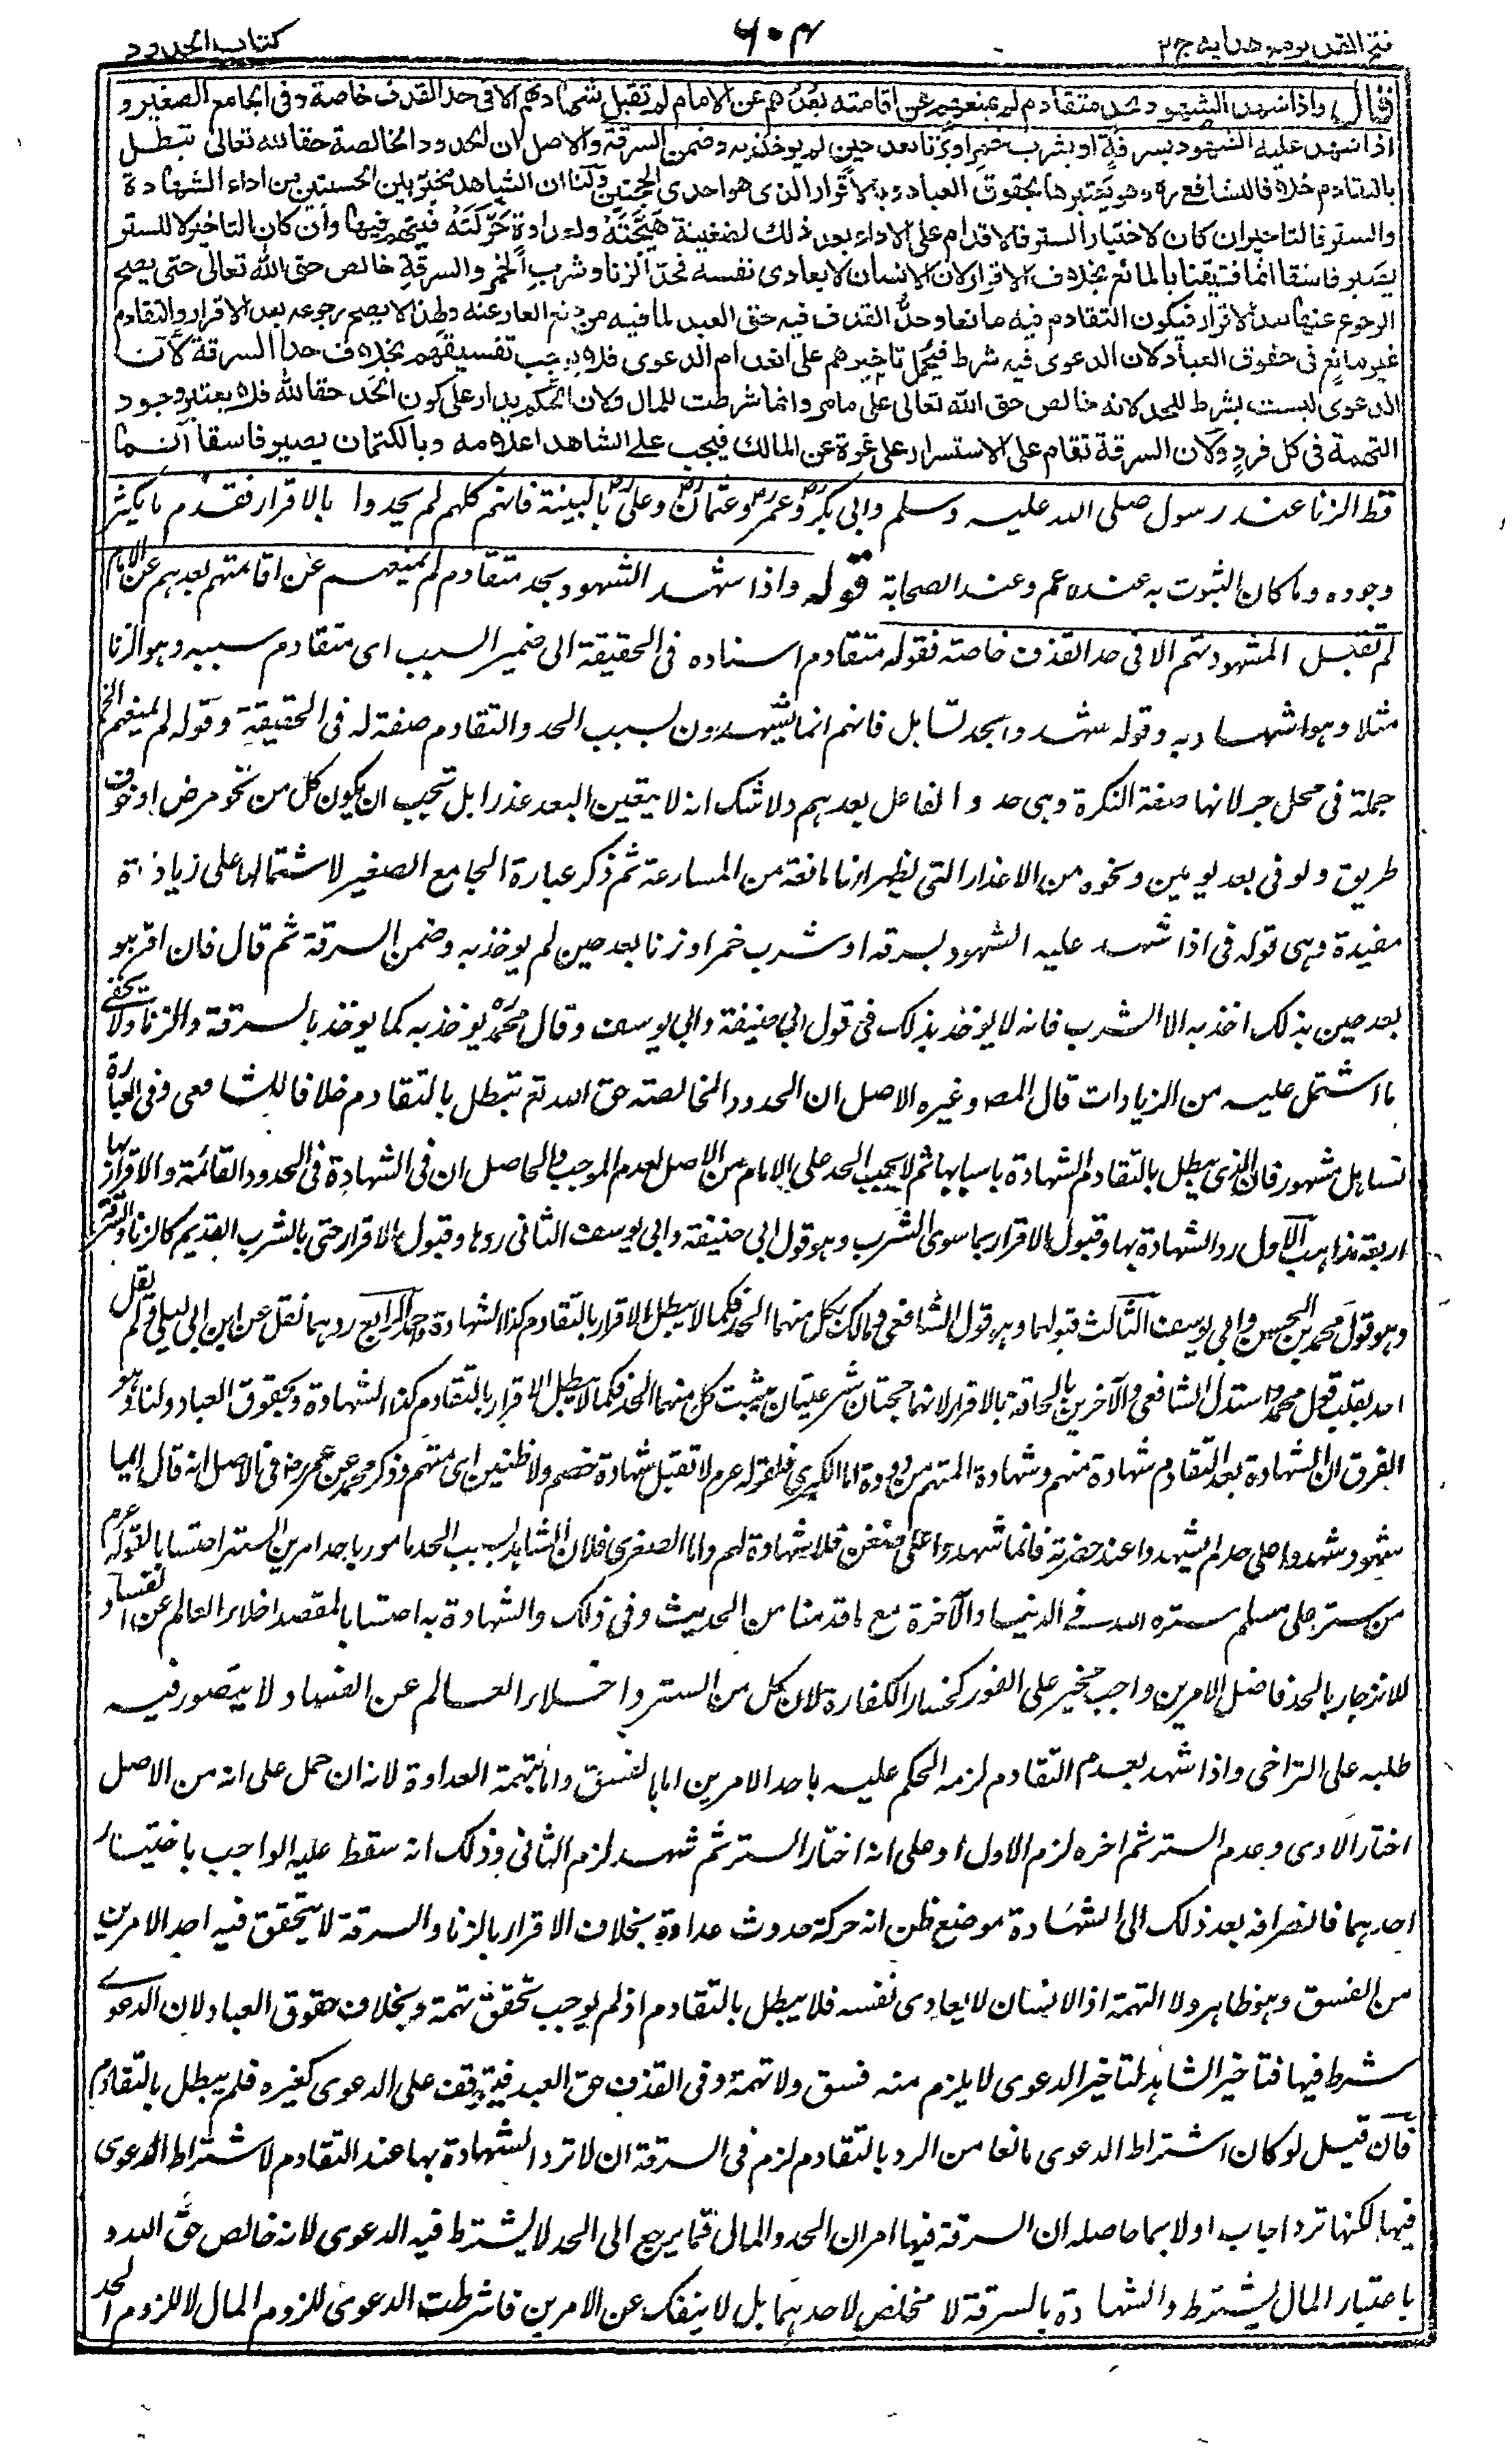 فتح القدير مع هدايه ج ٢
٦٠٤
كتاب الحدود
قال واذا شهد الشهود بحد متقادم لم يمنعهم عن اقامته بعدهم عن الامام لم تقبل شهادتهم الا فى حد القذف خاصة وفى الجامع الصغير و
اذا شهد عليه الشهود بسرقة او بشرب خمر او بزنا بعد حين لم يوخذ به وضمن السرقة والاصل ان الحدود الخالصة حقا لله تعالى تبطل
بالتقادم خلافا للشافعى ره وهو يعتبرها بحقوق العباد وبالاقرار الذى هو احدى الحجتين ولنا ان الشاهد مخير بين الحسبتين من اداء الشهادة
والستر فالتاخير ان كان لاختيار الستر فالاقدام على الاداء بعد ذلك لضغينة هيجته ولعداوة حركته فيتهم فيها وان كان التاخير لا للستر
يصير فاسقا اثما فتيقنا بالمانع بخلاف الاقرار لان الانسان لا يعادى نفسه فحد الزنا وشرب الخمر والسرقة خالص حق الله تعالى حتى يصح
الرجوع عنها بعد الاقرار فيكون التقادم فيه مانعا وحد القذف فيه حق العبد لما فيه من دفع العار عنه ولهذا لا يصح رجوعه بعد الاقرار والتقادم
غير مانع فى حقوق العباد لان الدعوى فيه شرط فيحمل تاخيرهم على انعدام الدعوى فلا يوجب تفسيقهم بخلاف حد السرقة لان
الدعوى ليست بشرط للحد لانه خالص حق الله تعالى على ما مر وانما شرطت للمال ولان الحكم يدار على كون الحد حقا لله فلا يعتبر وجود
التهمة فى كل فرد ولان السرقة تقام على الاستسرار على غرة عن المالك فيجب على الشاهد اعلامه وبالكتمان يصير فاسقا آثما
قط الزنا عند رسول صلى الله عليه وسلم وابى بكر وعمر وعثمان وعلى بالبينة فانهم كلهم لم يحدوا بالاقرار فقدم ما يكثر
وجوده وما كان الثبوت به عنده عم وعند الصحابة قوله واذا شهد الشهود بحد متقادم لم يمنعهم عن اقامتهم بعدهم عن الامام
لم تقبل المشهود تهم الا فى حد القذف خاصة فقوله متقادم اسناده فى الحقيقة الى ضمير السبب اى متقادم سببه وهو الزنا
مثلا وهوا شهادبه وقوله شهدوا بحد تساهل فانهم انما يشهدون بسبب الحد والتقادم صفة له فى الحقيقة وقوله لم يمنعهم الخ
جملة فى محل جر لانها صفة النكرة وهى حد والفاعل بعدهم ولا شك انه لا يتعين البعد عذرا بل تجب ان يكون كل من نحو مرض او خوف
طريق ولو فى بعد يومين ونحوه من الاعذار التى يظهر انها مانعة من المسارعة ثم ذكر عبارة الجامع الصغير لاشتمالها على زيادة
مفيدة وهى قوله فى اذا شهد عليه الشهود بسرقة او شرب خمر او زنا بعد حين لم يوخذ به وضمن السرقة ثم قال فان اقر هو
بعد حين بذلك اخذ به الا الشرب فانه لا يوخذ بذلك فى قول ابى حنيفة وابى يوسف وقال محمد يوخذ به كما يوخذ بالسرقة والزنا ولا يخفى
ما اشتمل عليه من الزيادات قال المصـ وغيره الاصل ان الحدود الخالصة حق الله تع تبطل بالتقادم خلافا للشافعى وفى العبارة
تساهل مشهور فان الذى يبطل بالتقادم الشهادة باسبابها ثم لا يجب الحد على الامام من الاصل لعدم الموجب والحاصل ان فى الشهادة فى الحدود القائمة والاقرار بها
اربعة مذاهب الاول رد الشهادة بها وقبول الاقرار بما سوى الشرب وهو قول ابى حنيفة وابى يوسف الثانى ردها وقبول الاقرار حتى بالشرب القديم كالزنا والسرقة
وهو قول محمد بن الحسن وابى يوسف الثالث قبولهما وهو قول الشافعى ومالك بكل منهما الحد فكما لا يبطل الاقرار بالتقادم كذا الشهادة واحمد الرابع ردهما نقل عن ابن ابى ليلى ولم ينقل
احد بقلب قول محمد واستدل الشافعى والآخرين بالحاقه بالاقرار لانهما حجتان شرعيتان يثبت كل منهما الحد فكما لا يبطل الاقرار بالتقادم كذا الشهادة وبحقوق العباد ولنا وهو
الفرق ان الشهادة بعد التقادم شهادة متهم وشهادة المتهم مردودة اما الكبرى فلقوله عم لا تقبل شهادة خصم ولا ظنين اى متهم وذكر محمد عن عمر رض فى الاصل انه قال ايما
شهود شهدوا على حد لم يشهدوا عند حضرته فانما شهدوا على ضغن فلا شهادة لهم واما الصغرى فلان الشاهد بسبب الحد مامور باحد امرين الستر احتسابا لقوله عم
من ستر على مسلم ستره الله فى الدنيا والآخرة مع ما قدمنا من الحديث وفى ذلك والشهادة به احتسابا لمقصد اخلاء العالم عن الفساد
للانزجار بالحد فاحد الامرين واجب مخير على الفور كخصال الكفارة لان كل من الستر واخلاء العالم عن الفساد لا يتصور فيه
طلبه على التراخى واذا شهد بعد التقادم لزمه الحكم عليه باحد الامرين اما بالفسق واما بتهمة العداوة لانه ان حمل على انه من الاصل
اختار الادى وعدم الستر ثم اخره لزم الاول او على انه اختار الستر ثم شهد لزم الثانى وذلك انه سقط عليه الواجب باختيار
احدهما فانصرافه بعد ذلك الى الشهادة موضع ظن انه حركة حدوث عداوة بخلاف الاقرار بالزنا والسرقة لا يتحقق فيه احد الامرين
من الفسق وهو ظاهر ولا التهمة اذ الانسان لا يعادى نفسه فلا يبطل بالتقادم اذ لم يوجب تحقق تهمة وبخلاف حقوق العباد لان الدعوى
شرط فيها فتاخير الشاهد لتاخير الدعوى لا يلزم منه فسق ولا تهمة وفى القذف حق العبد فيتوقف على الدعوى كغيره فلم يبطل بالتقادم
فان قيل لو كان اشتراط الدعوى مانعا من الرد بالتقادم لزم فى السرقة ان لا ترد الشهادة بها عند التقادم لاشتراط الدعوى
فيها لكنها ترد اجاب اولا بما حاصله ان السرقة فيها امران الحد والمال فما يرجع الى الحد لا يشترط فيه الدعوى لانه خالص حق الله و
باعتبار المال يشترط والشهادة بالسرقة لا تخلص لاحدهما بل لا ينفك عن الامرين فاشترطت الدعوى للزوم المال لا للزوم الحد